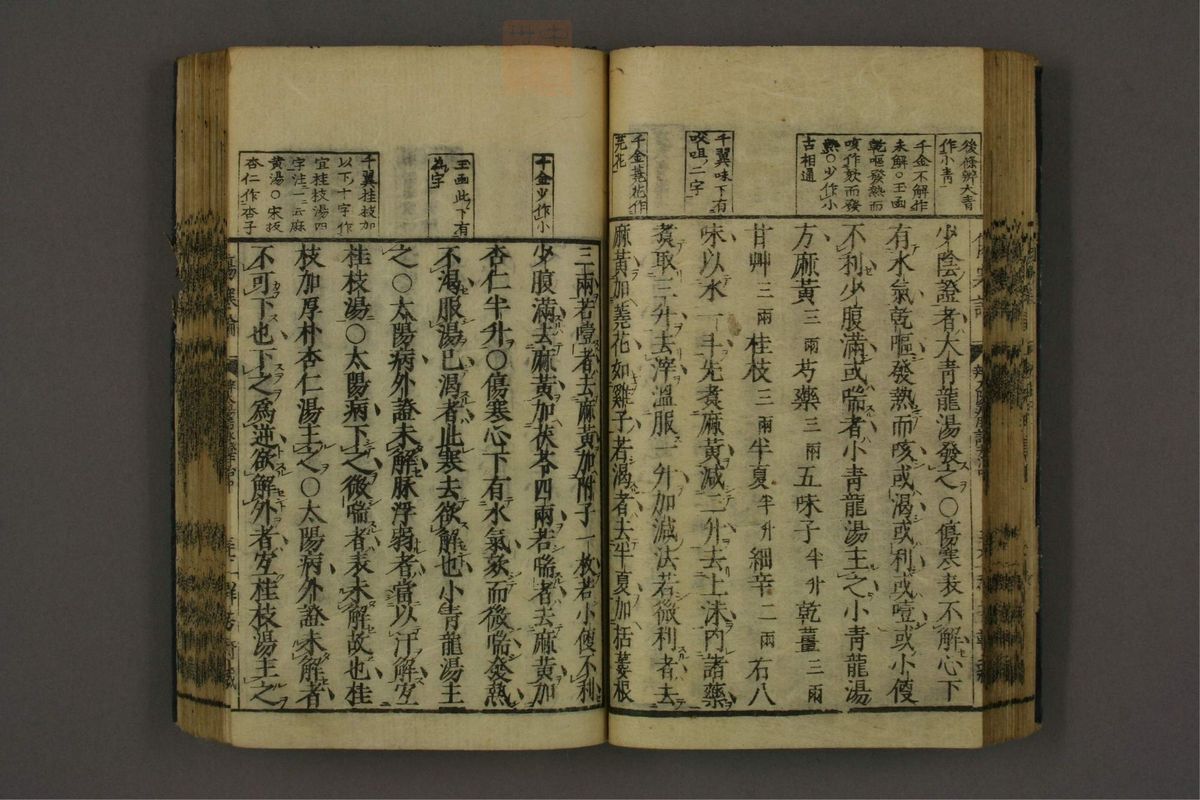 後條辨大青
作小青
千金不解作
未解○玉函
乾嘔發熱而
咳作欬而發
熱○少作小
古相通
千翼味下有
㕮咀二字
千金蕘花作
芫花
少陰證者大青龍湯發之○傷寒表不解心下
有水氣乾嘔發熱而咳或渴或利或噎或小便
不利少腹滿或喘者小青龍湯主之小青龍湯
方麻黃三兩芍藥三兩五味子半升乾薑三兩
甘艸三兩桂枝三兩半夏半升細辛二兩右八
味以水一斗先煮麻黃減二升去上沫內諸藥
煮取三升去滓溫服一升加減法若微利者去
麻黃加蕘花如雞子若渴者去半夏加栝蔞根
千金少作小
玉函此下有
為字
千翼桂枝加
以下十字作
宜桂枝湯四
字注一云麻
黃湯○宋板
杏仁作杏子
三兩若噎者去麻黃加附子一枚若小便不利
少腹滿去麻黃加茯苓四兩若喘者去麻黃加
杏仁半升○傷寒心下有水氣欬而微喘發熱
不渴服湯已渴者此寒去欲解也小青龍湯主
之○太陽病外證未解脉浮弱者當以汗解宜
桂枝湯○太陽病下之微喘者表未解故也桂
枝加厚朴杏仁湯主之○太陽病外證未解者
不可下也下之爲逆欲解外者宜桂枝湯主之